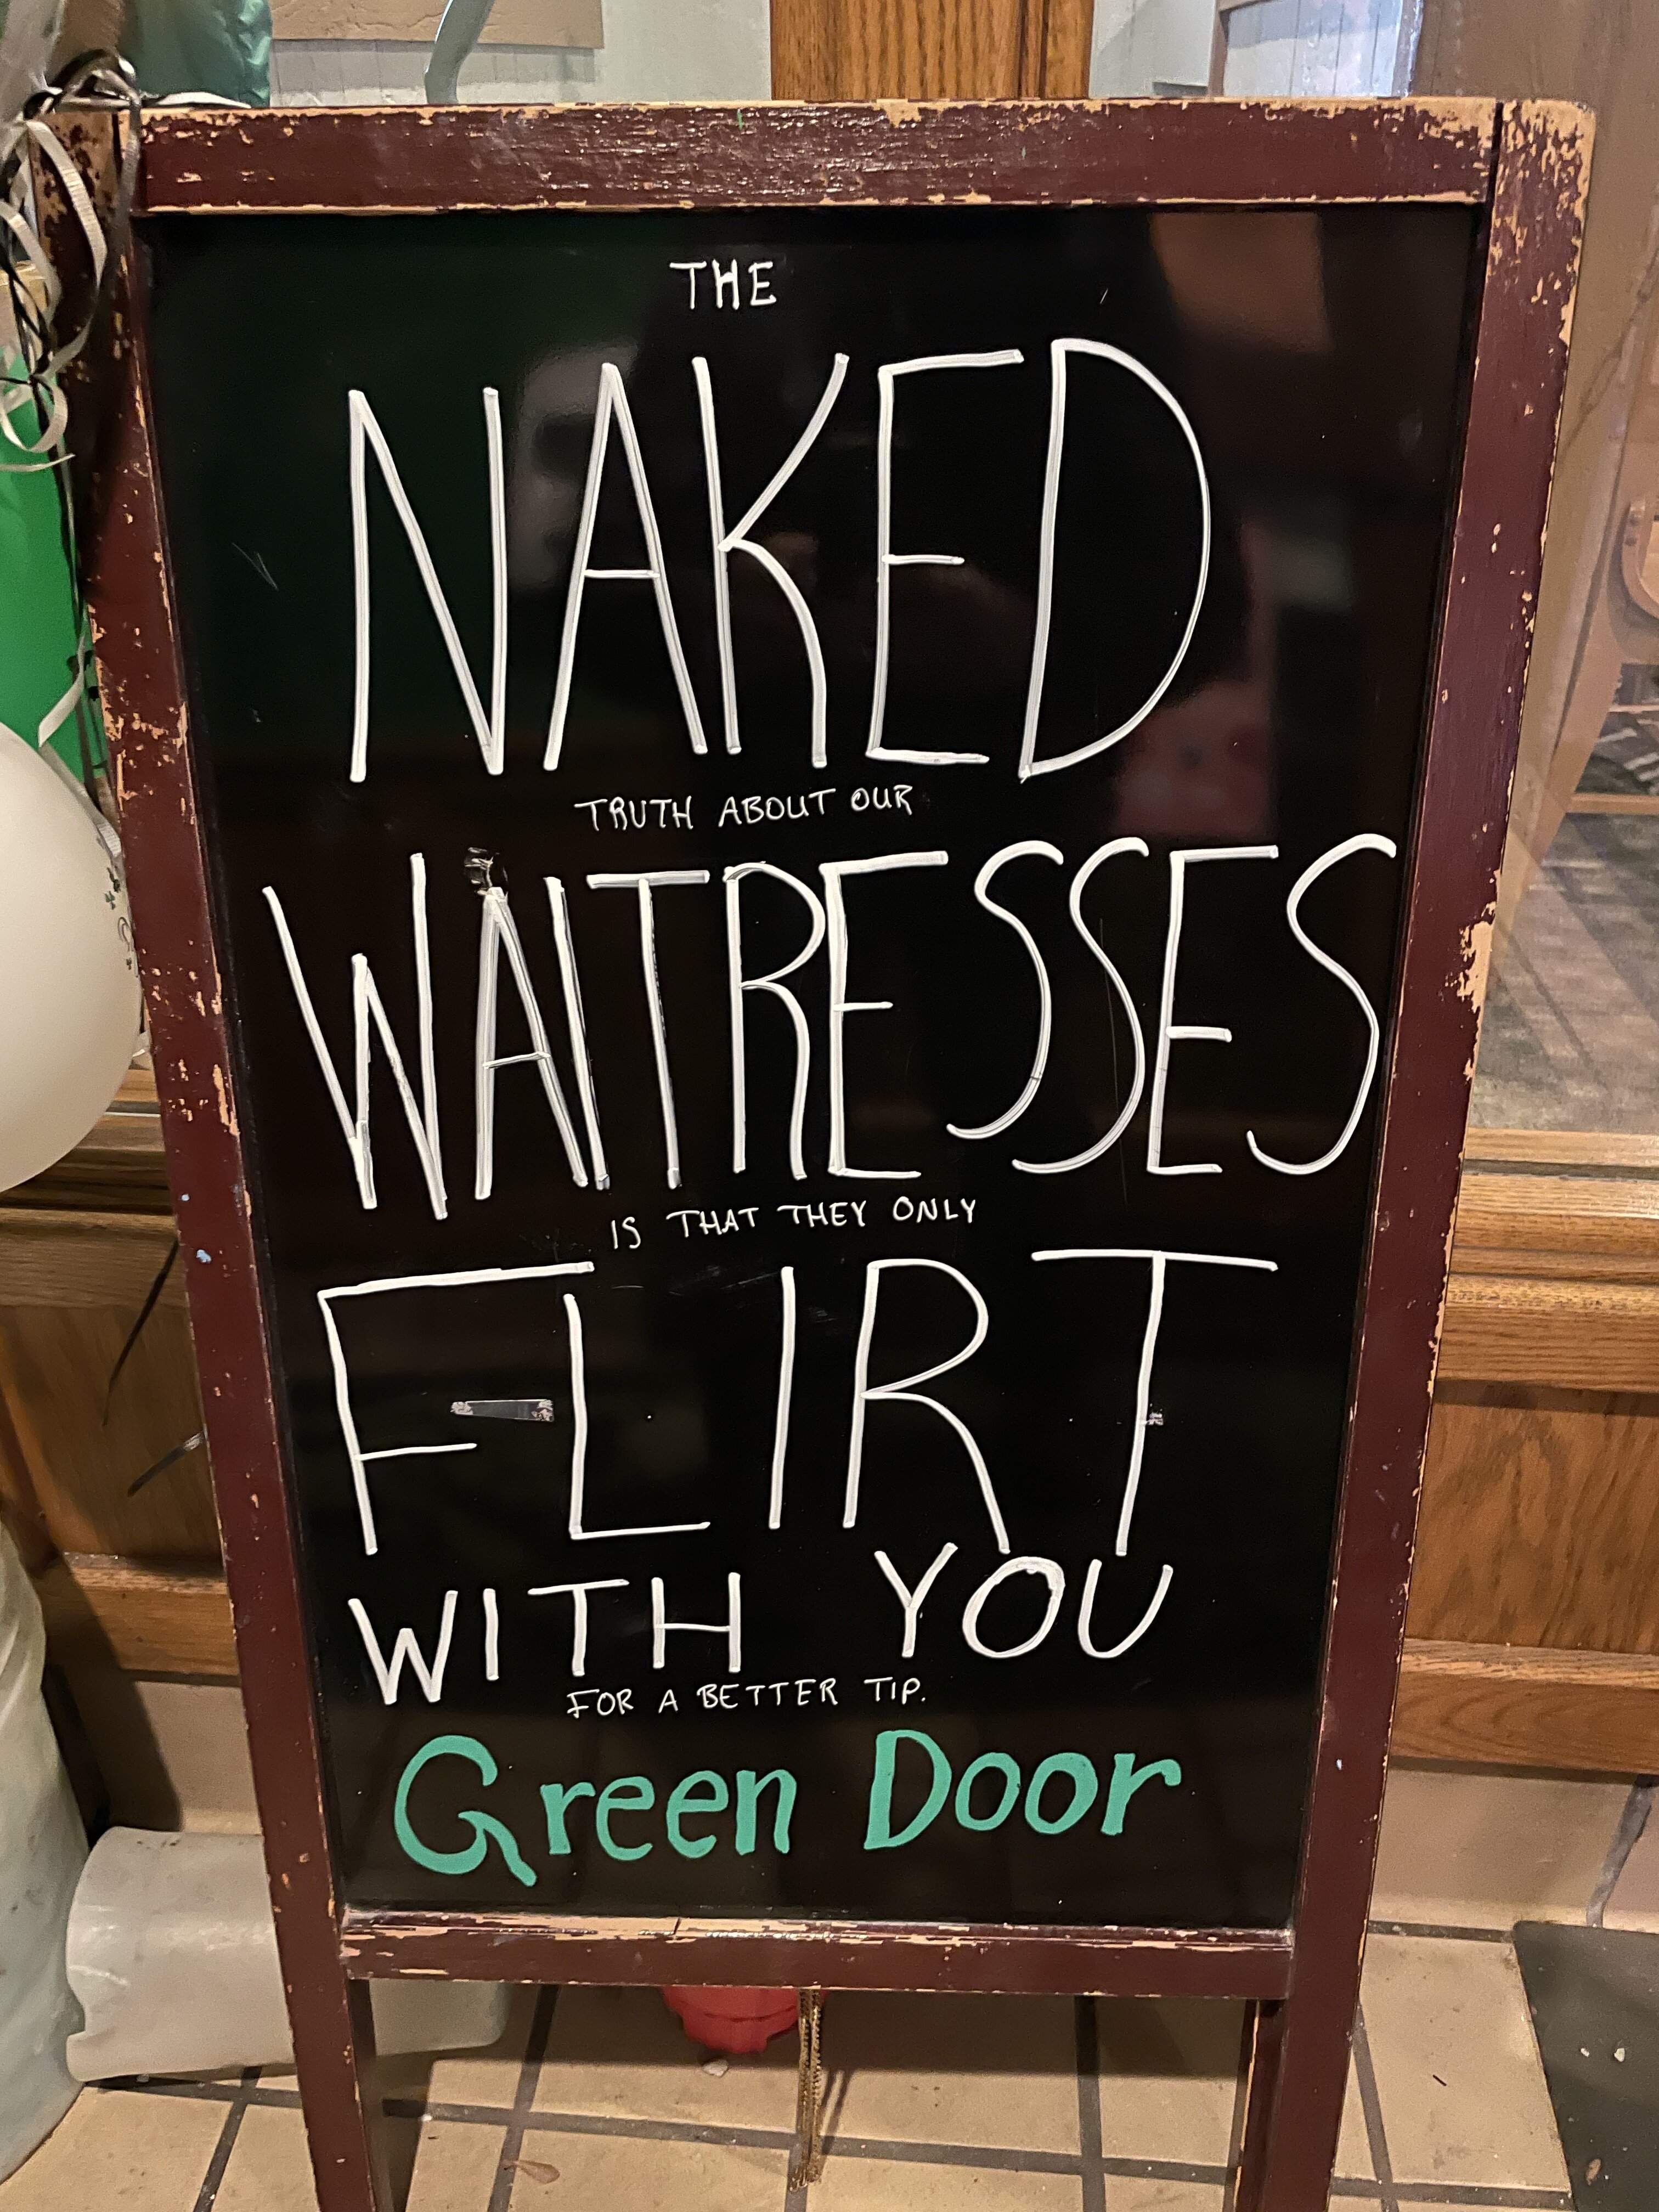 THE
NAKED
TRUTH ABOUT OUR
WAITRESSES
IS THAT THEY ONLY
FLIRT
WITH YOU
FOR A BETTER TIP.
Green Door